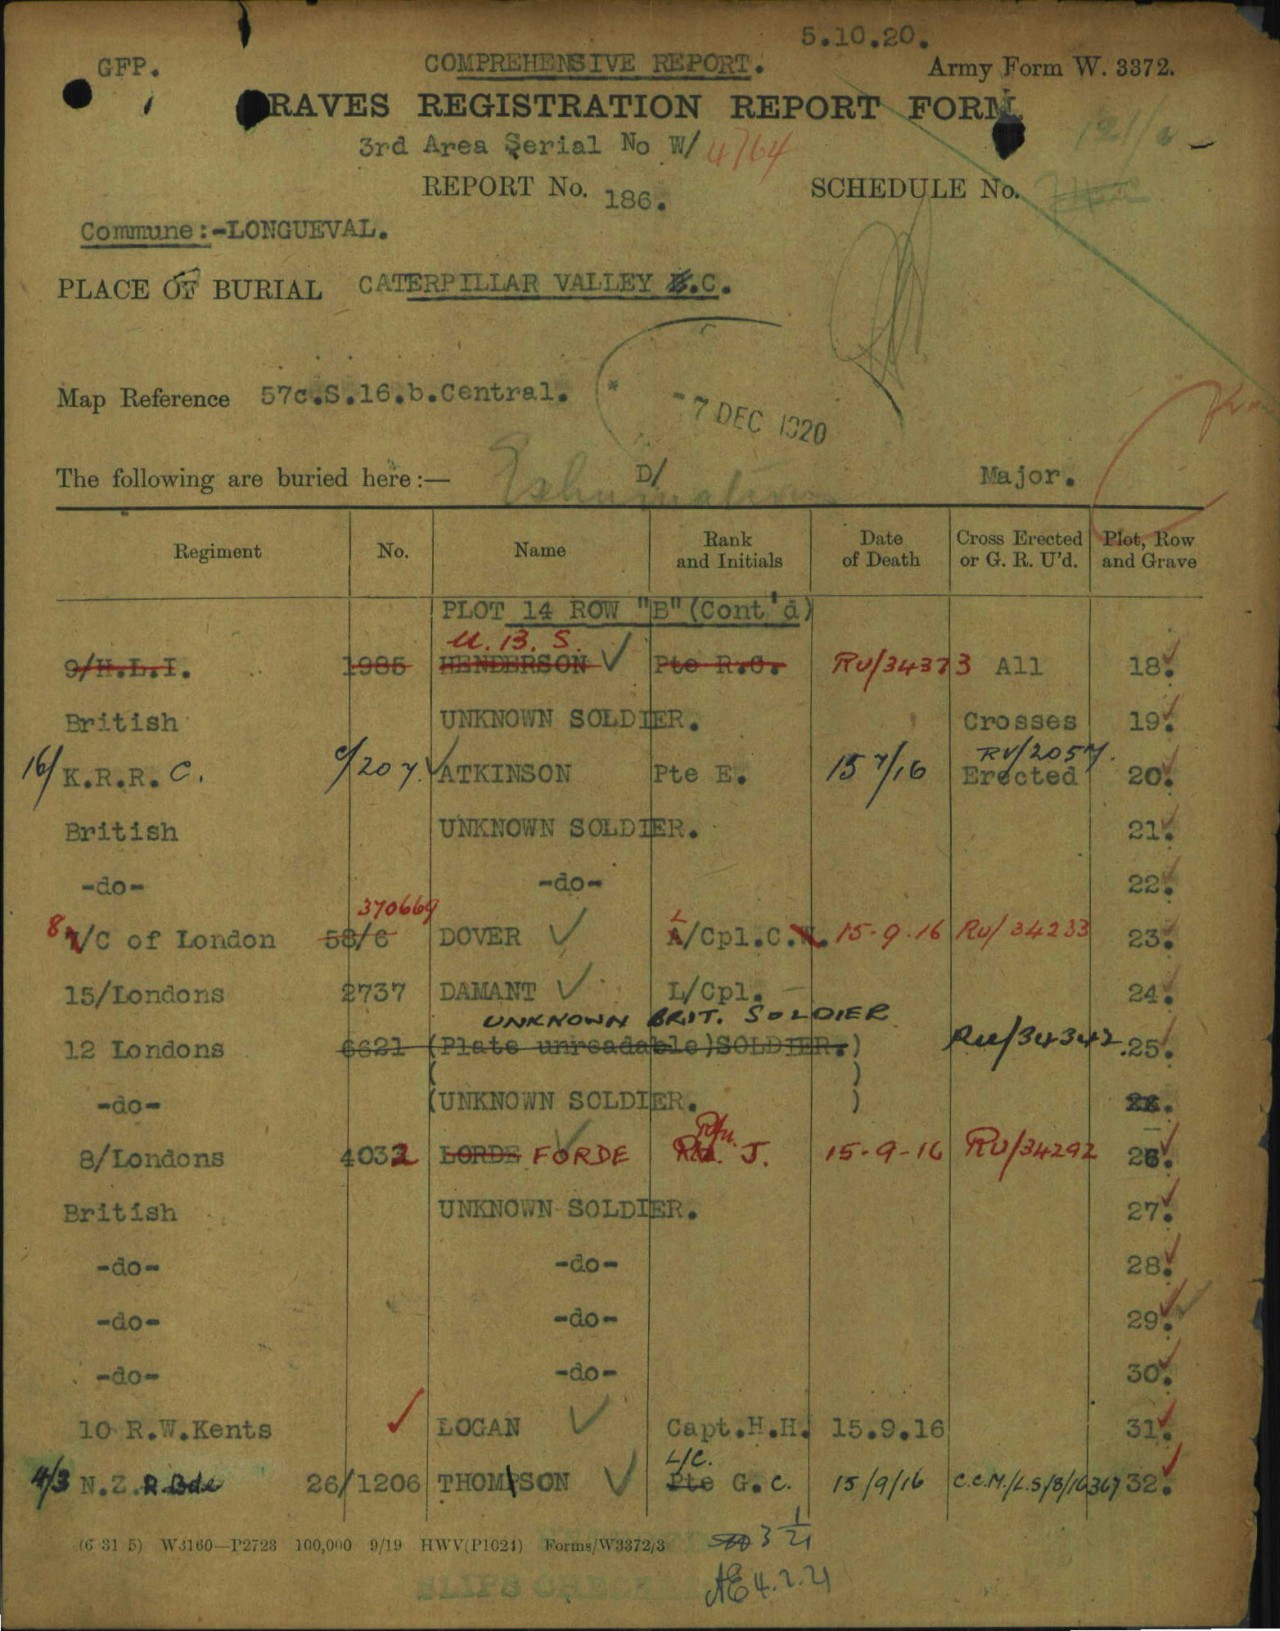 5.10.20.
GFP. COMPREHENSIVE REPORT. Army Form W. 3372.
RAVES REGISTRATION REPORT FORM
3rd Area Serial No W/ 4764
REPORT No. 186. SCHEDULE No.
Commune:-LONGUEVAL.
PLACE OF BURIAL CATERPILLAR VALLEY .C.
Map Reference 57c.S.16.b.Central.
-7 DEC 1920
The following are buried here:— Exhumation D/ Major.
Regiment No. Name Rank and Initials Date of Death Cross Erected or G. R. U'd. Plot, Row and Grave
PLOT 14 ROW "B"(Cont'd)
U. B. S.
9/H.L.I. 1985 HENDERSON Pte R.C. RU/34373 All 18.
British UNKNOWN SOLDIER. Crosses 19.
RU/2057.
16/ K.R.R.C. C/207. ATKINSON Pte E. 15 7/16 Erected 20.
British UNKNOWN SOLDIER. 21.
-do- -do- 22.
370669
8 7/C of London 58/6 DOVER L A/Cpl.C. 15-9-16 RU/34233 23.
15/Londons 2737 DAMANT L/Cpl. - 24.
UNKNOWN BRIT. SOLDIER
12 Londons 6621 (Plate unreadable)SOLDIER.) RU/34342 25.
-do- (UNKNOWN SOLDIER. )
Rfn.
8/Londons 4032 LORDE FORDE J. 15-9-16 RU/34292 26.
British UNKNOWN SOLDIER. 27.
-do- -do- 28.
-do- -do- 29.
-do- -do- 30.
10 R.W.Kents LOGAN Capt.H.H. 15.9.16 31.
L/C.
4/3 N.Z. R. Bde 26/1206 THOMPSON Pte G.C. 15/9/16 C.C.M./L.S/8/16367 32.
(6 31 5) W3160—P2723 100,000 9/19 HWV(P1024) Forms/W3372/3
3 1/21
SLIPS CHECK
AE 4.2.21